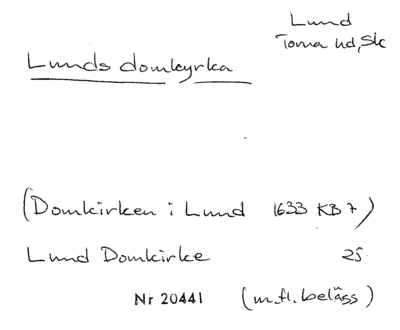 Lund
Torna hd, Sk
Lunds domkyrka
(Domkirken i Lund 1633 KB 7)
Lund Domkirke 25
Nr 20441 (m.fl. belägg)